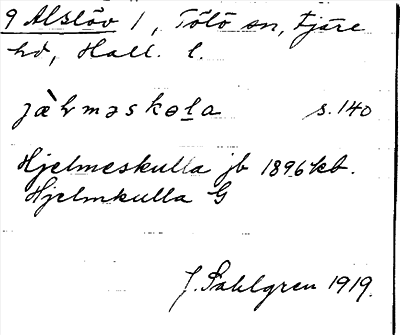 9 Alslöv 1, Tölö sn, Fjäre
hd, Hall. l.
jàlməskəla s.140
Hjelmeskulla jb 1896 kb.
Hjelmkulla G
J. Sahlgren 1919.